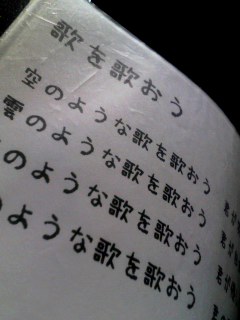 歌を歌おう
空のような歌を歌おう
雲のような歌を歌おう
のような歌を歌おう
のような歌を歌おう